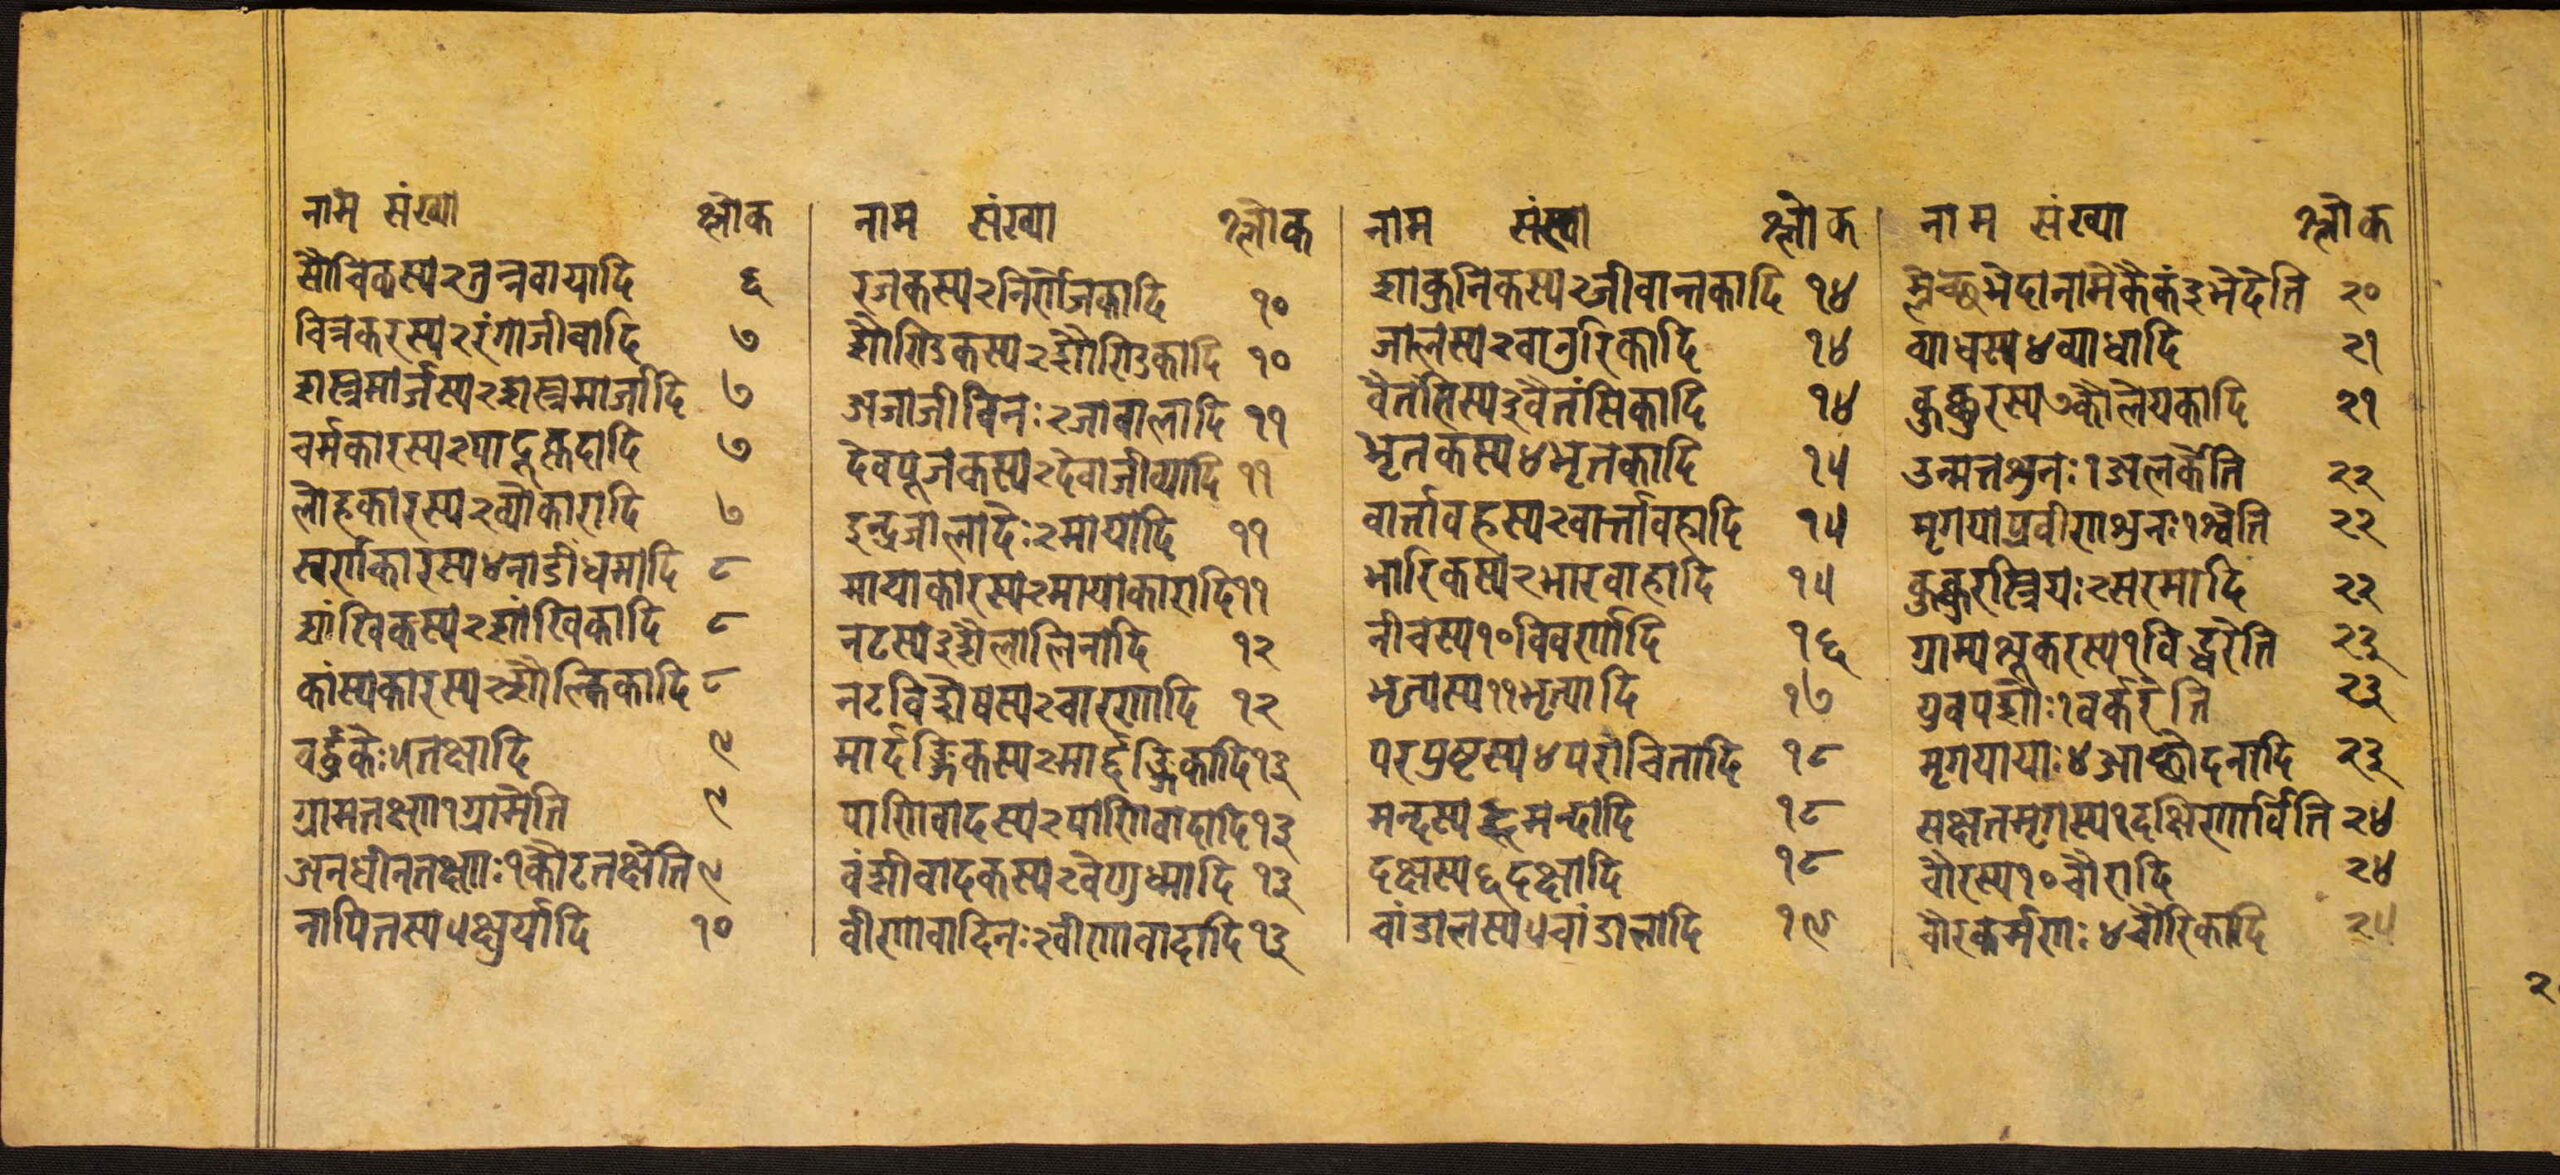 नाम संख्या श्लोक
सौचिकस्य २ तुन्नवायादि ६
चित्रकरस्य २ रंगाजीवादि ७
शस्त्रमार्जस्य २ शस्त्रमार्जादि ७
चर्मकारस्य २ पादूकृदादि ७
लोहकारस्य २ व्योकारादि ७
स्वर्णकारस्य ४ नाडींधमादि ८
शांखिकस्य २ शांखिकादि ८
कांस्यकारस्य २ शौल्विकादि ८
वर्द्धकेः ५ तक्षादि ९
ग्रामतक्ष्ण १ ग्रामेति ९
अनधीनतक्ष्णः १ कौटतक्षेति ९
नापितस्य ५ क्षुर्यादि १०
नाम संख्या श्लोक
रजकस्य २ निर्णेजकादि १०
शौण्डिकस्य २ शौण्डिकादि १०
अजाजीविनः २ जाबालादि ११
देवपूजकस्य २ देवाजीव्यादि ११
इन्द्रजालादेः २ मायादि ११
मायाकारस्य २ मायाकारादि ११
नटस्य ३ शैलालिनादि १२
नटविशेषस्य २ चारणादि १२
मार्दङ्गिकस्य २ मार्द्दङ्गिकादि १३
पाणिवादस्य २ पाणिवादादि १३
वंशीवादकस्य २ वेणुध्मादि १३
वीणावादिनः २ वीणावादादि १३
नाम संख्या श्लोक
शाकुनिकस्य २ जीवान्तकादि १४
जालस्य २ वागुरिकादि १४
वैतंसिस्य ३ वैतंसिकादि १४
भृतकस्य ४ भृतकादि १५
वार्त्तावहस्य २ वार्त्तावहादि १५
भारिकस्य २ भारवाहादि १५
नीचस्य १० विवर्णादि १६
भृत्यस्य ११ भृत्यादि १७
परप्रष्टस्य ४ पराचितादि १८
मन्दस्य ६ मन्दादि १८
दक्षस्य ६ दक्षादि १८
चांडालस्य ५ चांडालादि १९
नाम संख्या श्लोक
म्लेच्छभेदानामेकैकं ३ भेदेति २०
व्याधस्य ४ व्याधादि २१
कुक्कुरस्य ७ कौलेयकादि २१
उन्मत्तशुनः १ अलर्केति २२
मृगयाप्रवीणशुनः १ श्वेति २२
कुक्कुरस्त्रियः २ सरमादि २२
ग्राम्यशूकरस्य १ विड्वरेति २३
युवपशोः १ वर्करेति २३
मृगयायाः ४ आच्छोदनादि २३
सक्षतमृगस्य १ दक्षिणेर्विति २४
चौरस्य १० चौरादि २४
चौरकर्मणः ४ चौरिकादि २५